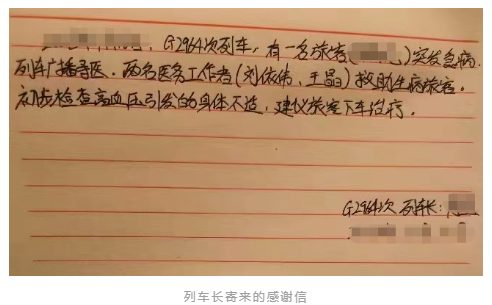 G2964次列车，有一名旅客（ ）突发急病
列车广播寻医，两名医务工作者（刘依伟、王晶）救助生病旅客。
初步检查高血压引发的身体不适，建议旅客下车治疗。
G2964次 列车长：
列车长寄来的感谢信